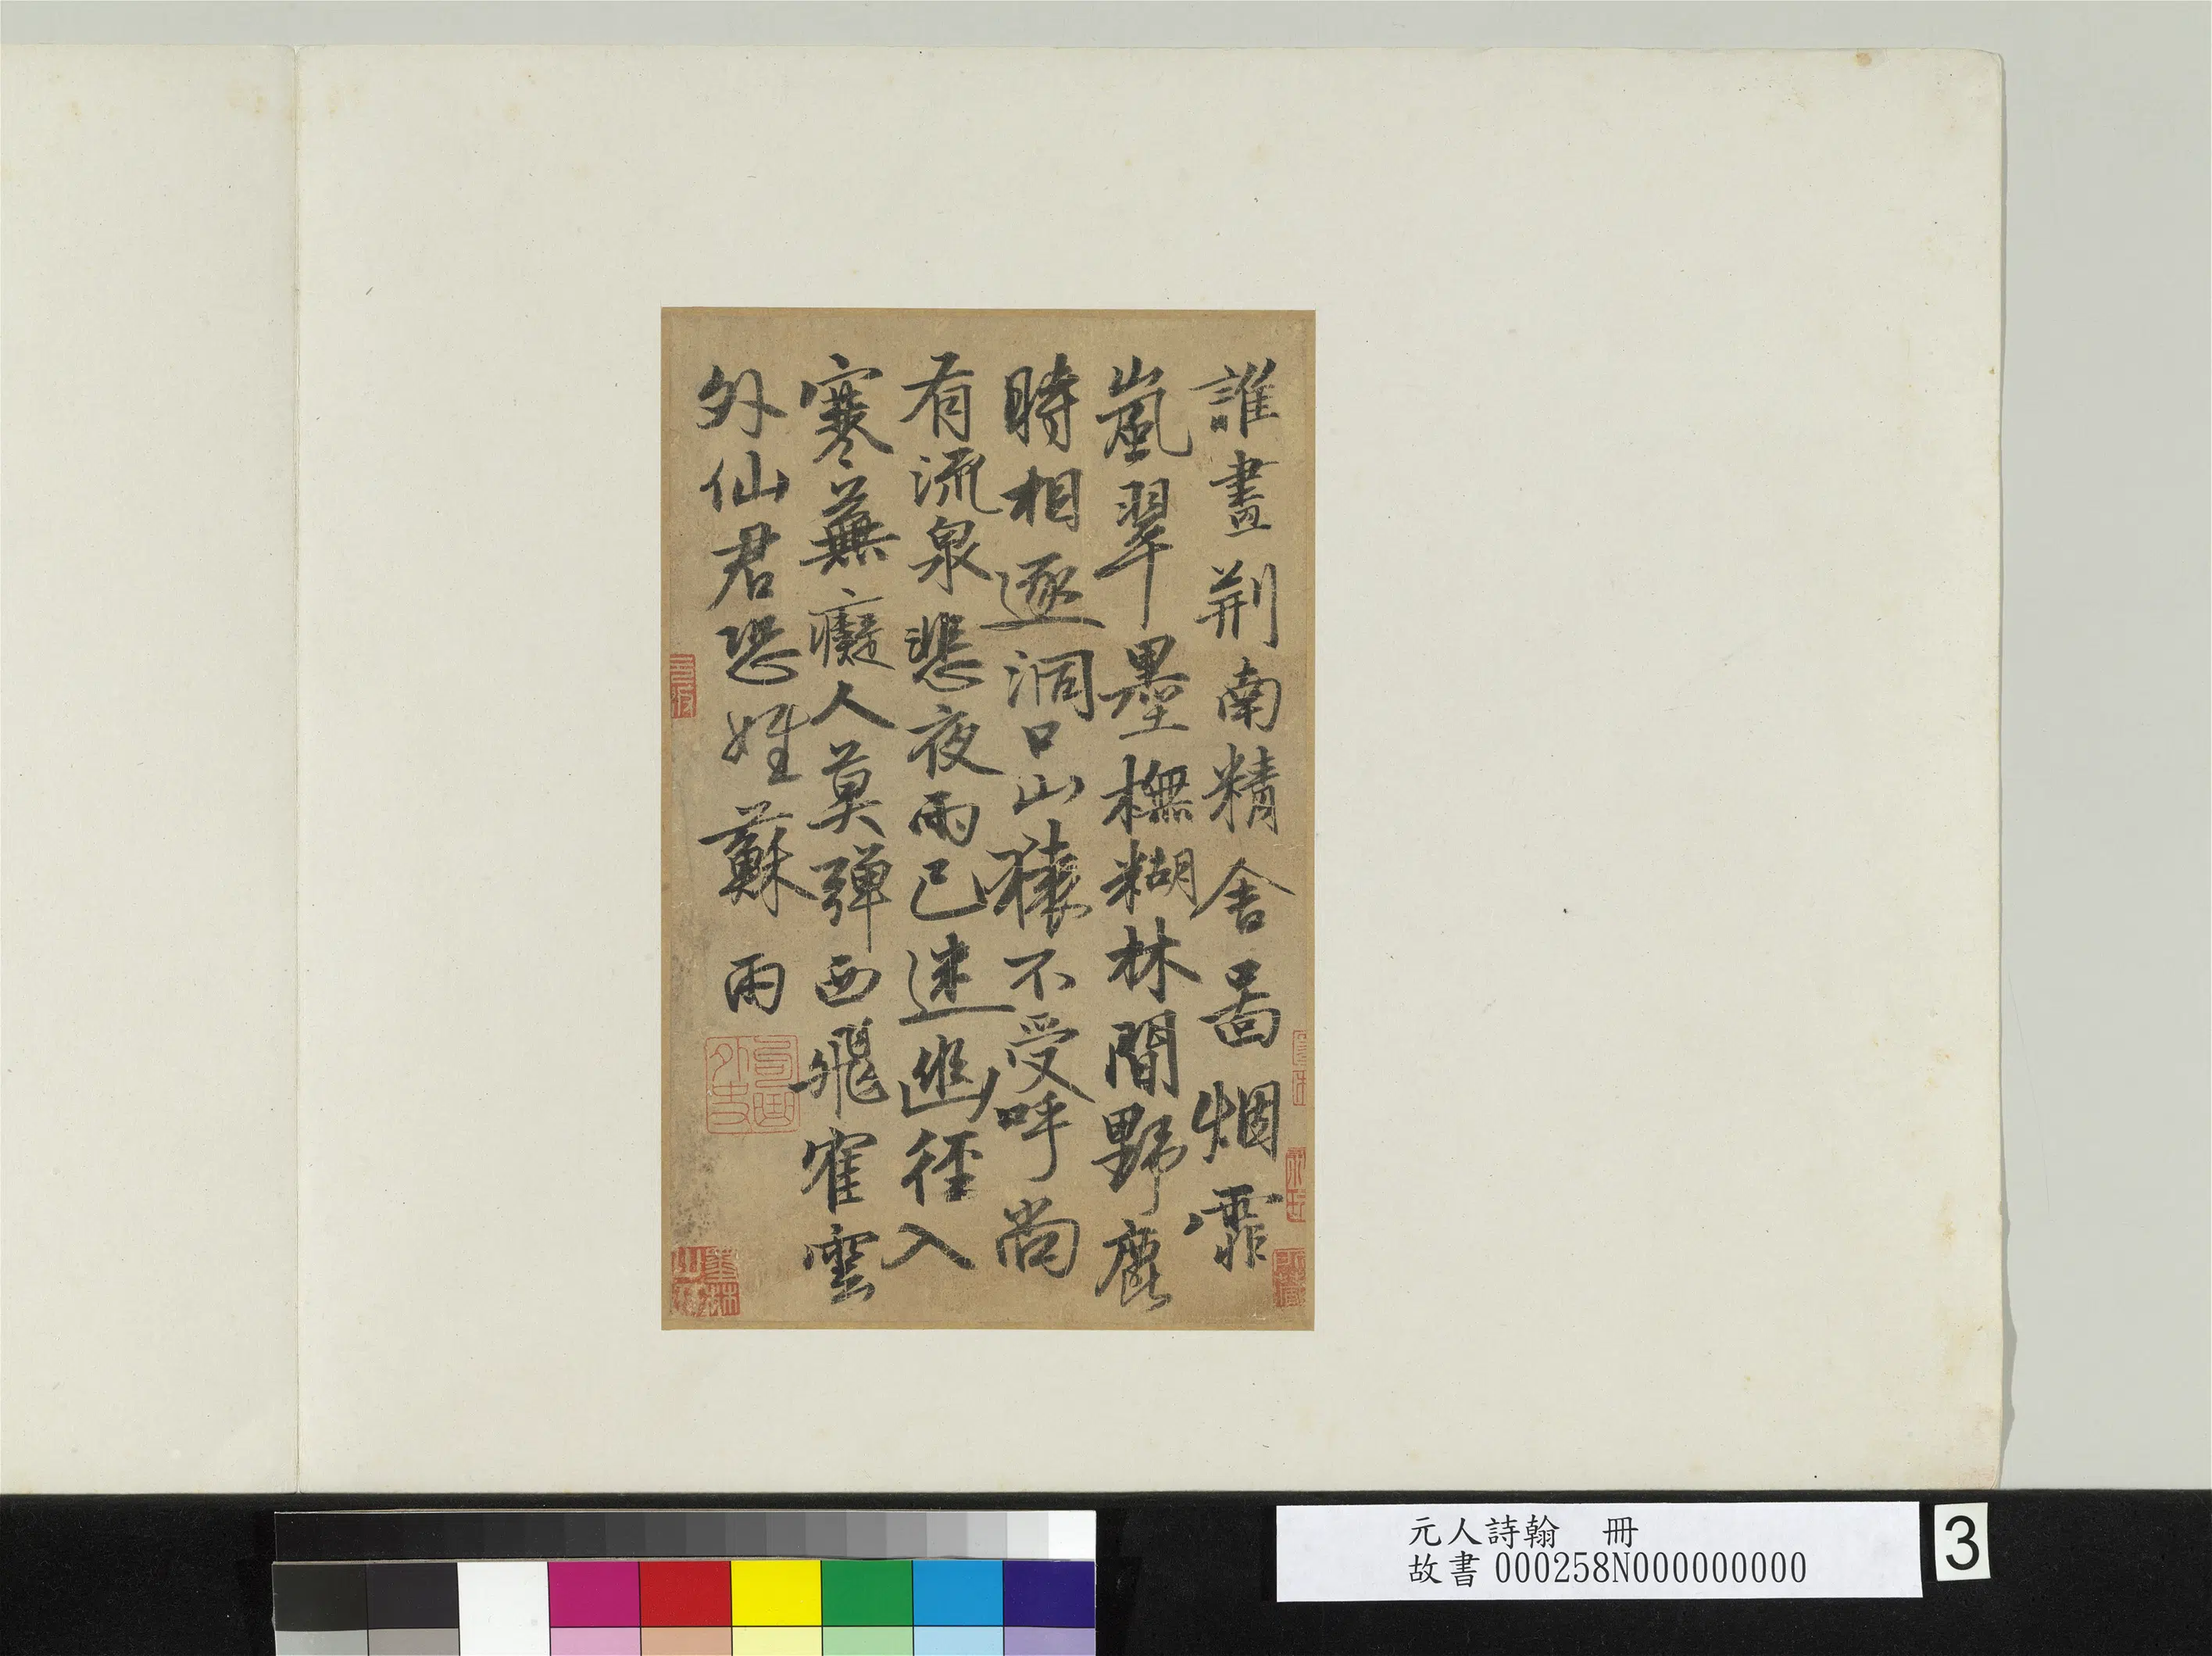 誰畫荊南精舍啚烟霏
嵐翠墨橅糊林間野麀
時相逐洞口山猿不受呼尚
有流泉悲夜雨已迷幽徑入
寒蕪癡人莫彈西飛隺雲
外仙君恐姓蘇 雨
元人詩翰 冊
故書 000258N000000000
3